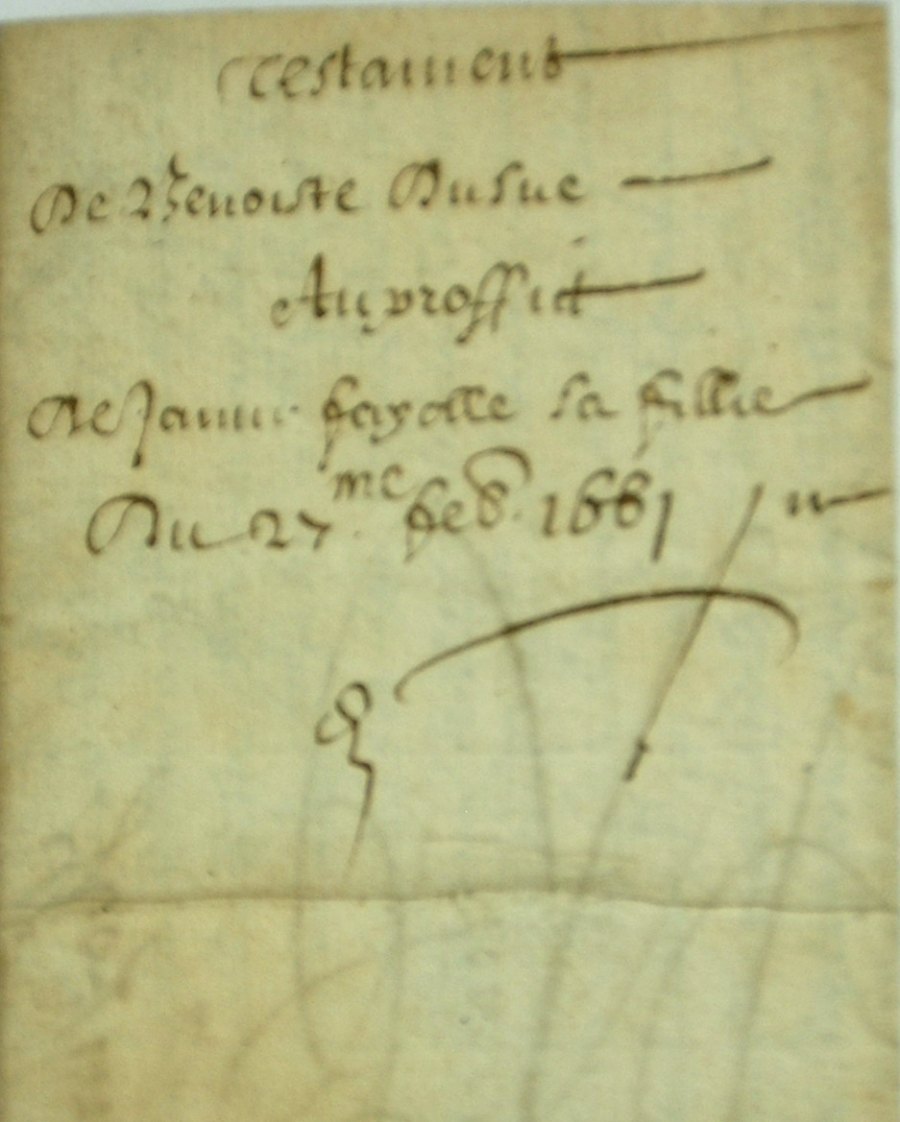 Testament
De Benoiste Dusue
Au proffict
De Janne fayolle sa fillie
Du 27me feb. 1661